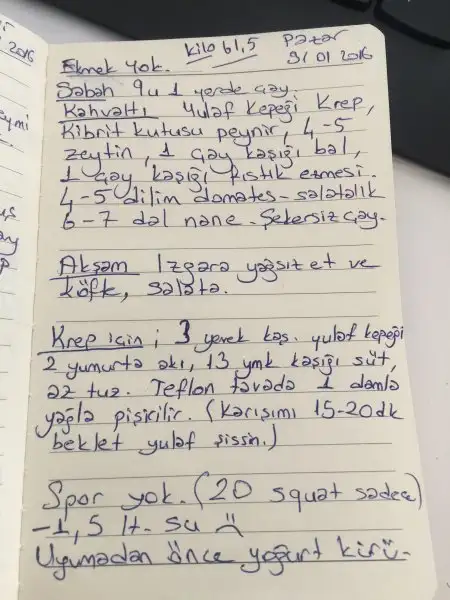 2016
Ekmek yok.
kilo 61,5
Pazar
31 01 2016
Sabah 9u 1 yerde çay.
Kahvaltı Yulaf Kepeği Krep,
Kibrit kutusu peynir, 4-5
zeytin, 1 çay kaşığı bal,
1 çay kaşığı fıstık ezmesi.
4-5 dilim domates-salatalık
6-7 dal nane. Şekersiz çay.
Akşam Izgara yağsız et ve
köfte, salata.
Krep için; 3 yemek kaş. yulaf kepeği
2 yumurta akı, 13 ymk kaşığı süt,
az tuz. Teflon tavada 1 damla
yağla pişirilir. (Karışımı 15-20dk
beklet yulaf şişsin.)
Spor yok. (20 squat sadece)
-1,5 lt. su
Uyumadan önce yoğurt kürü-